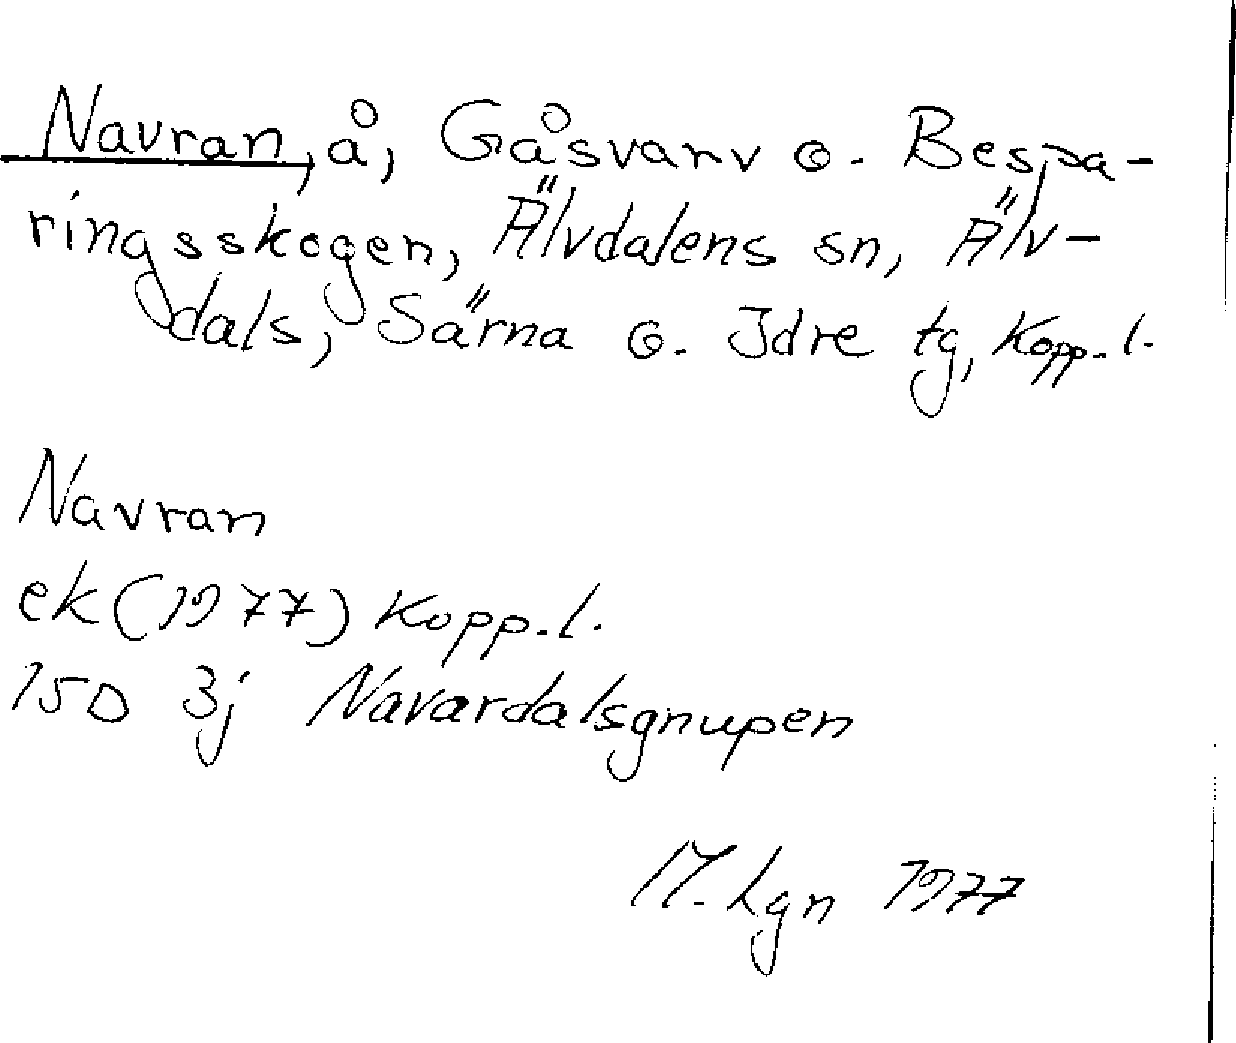 Navran, å, Gåsvarv o. Bespa-
ringsskogen, Älvdalens sn, Älv-
dals, Särna o. Idre tg, Kopp. l.
Navran
ek (1977) Kopp. l.
15D 3j Navardalsgnupen
M. Lgn 1977